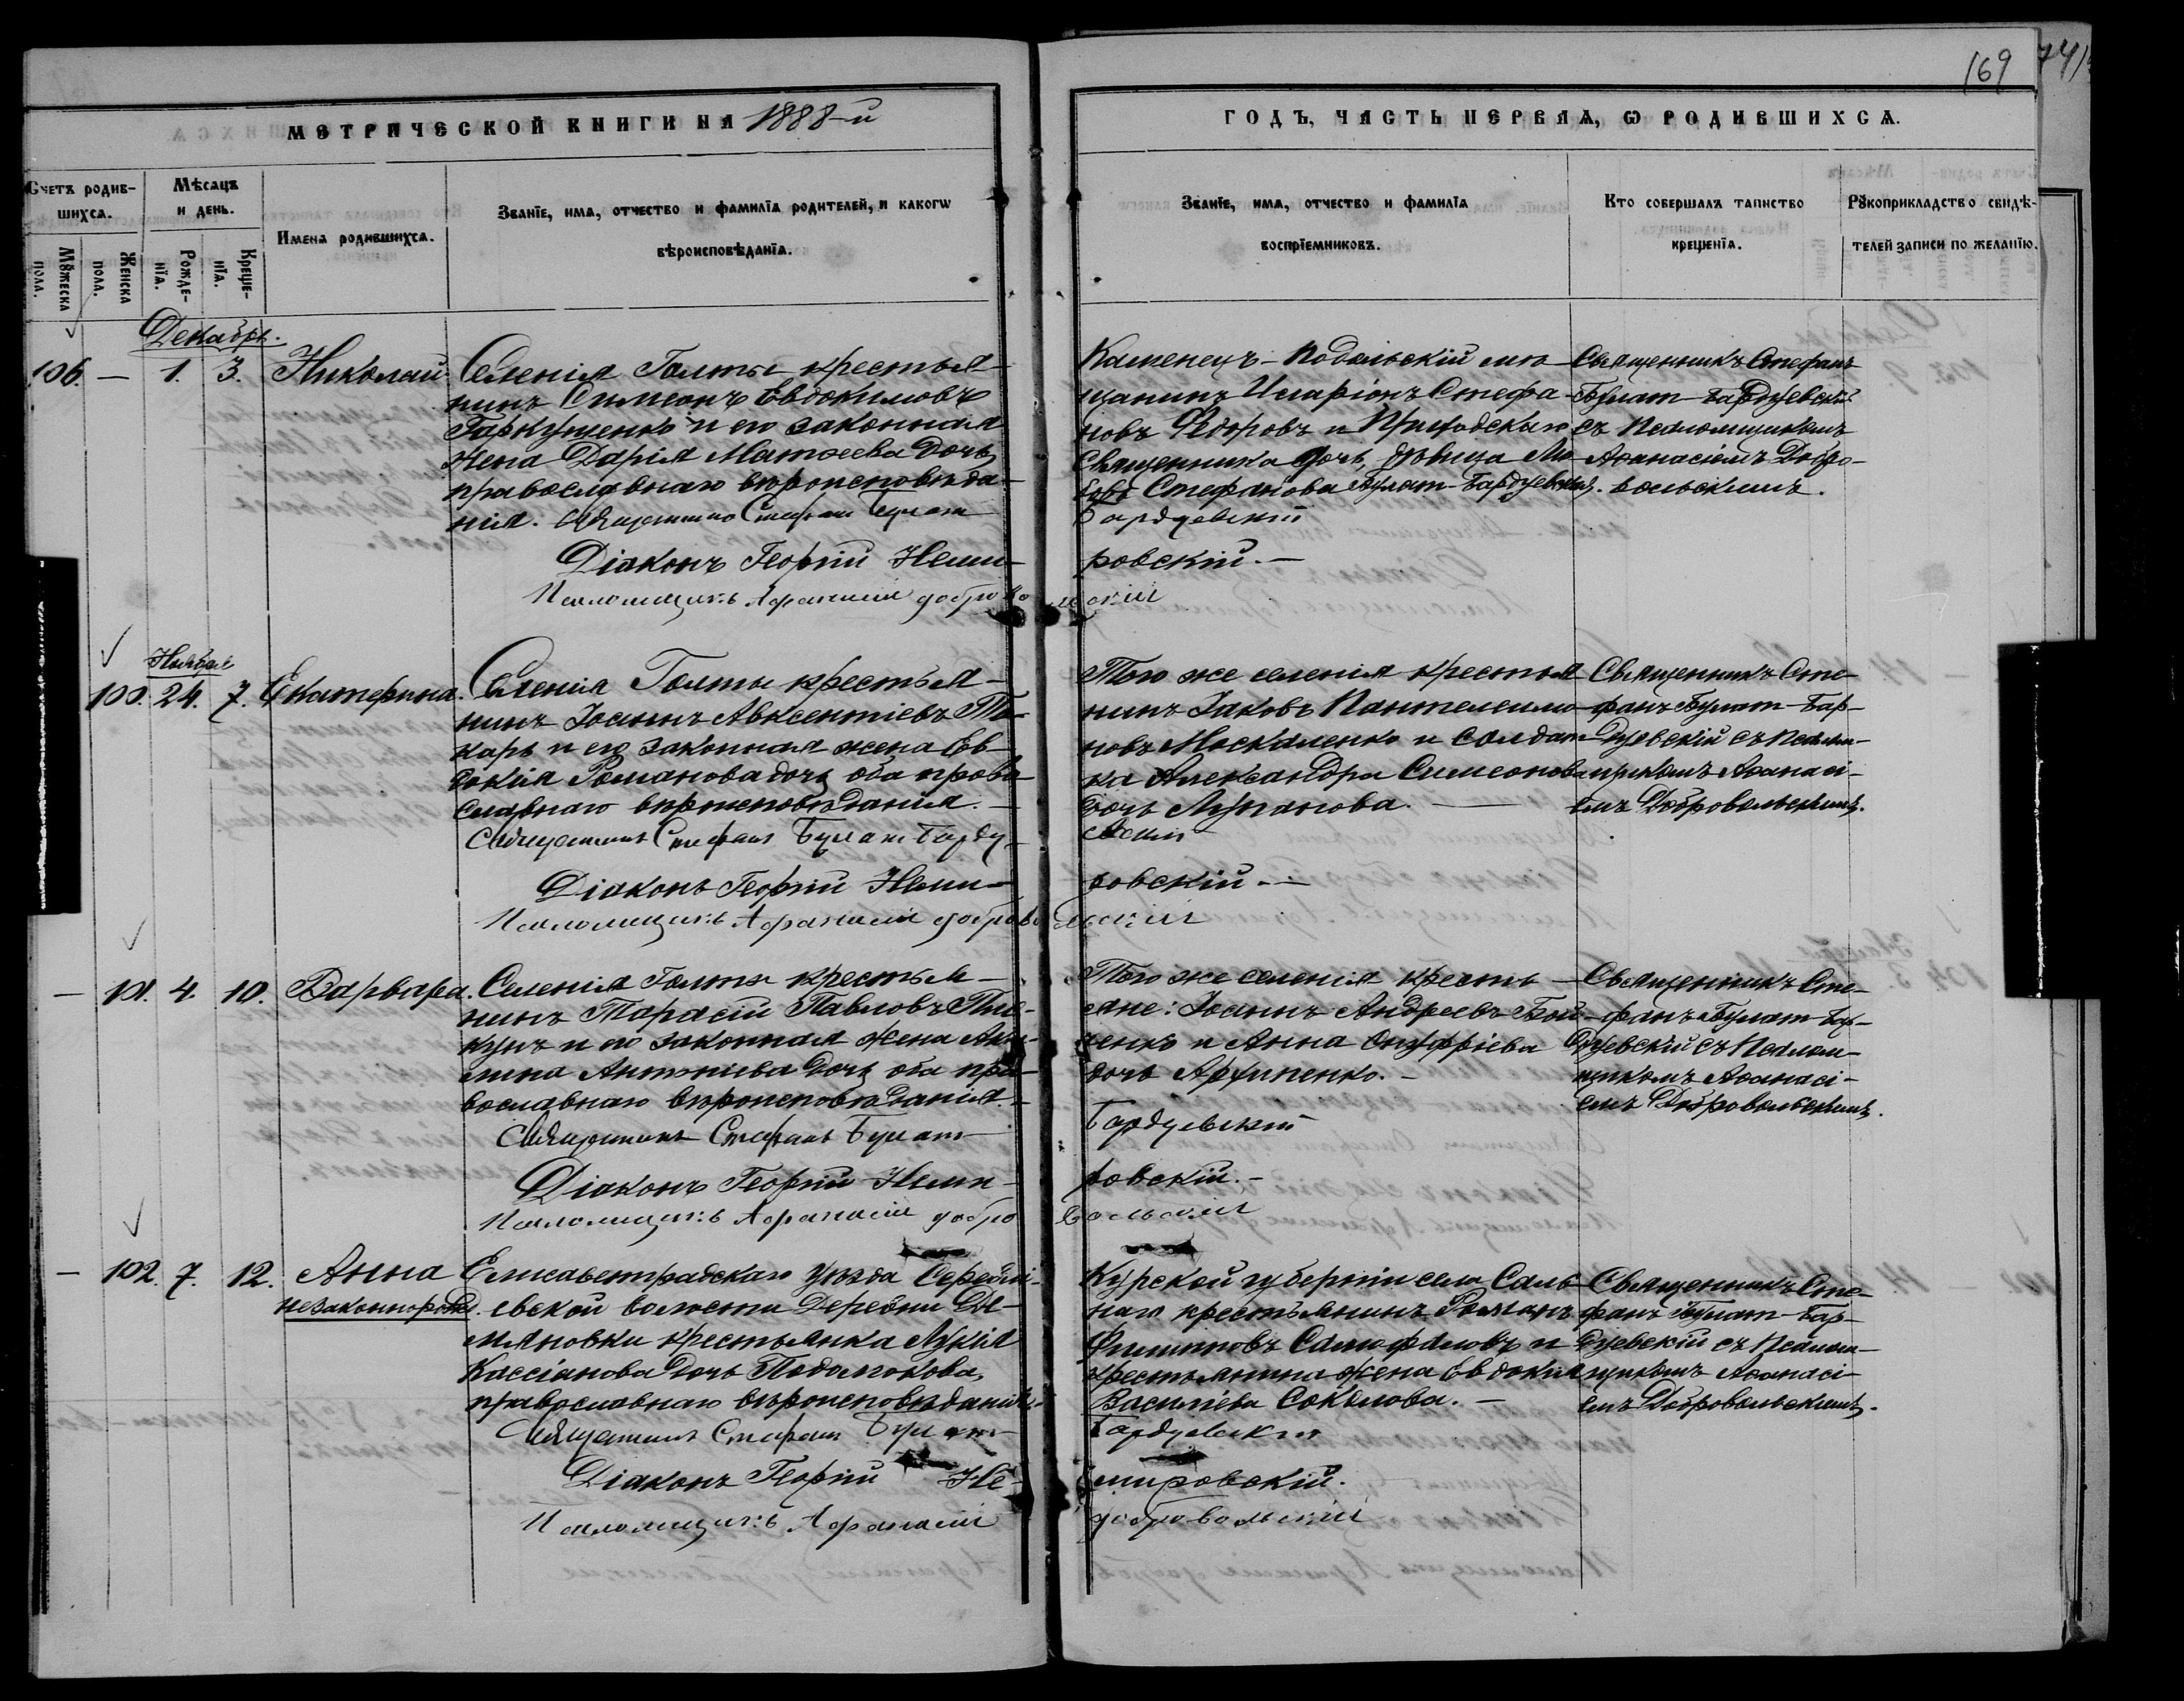 169
МЕТРИЧЕСКОЙ КНИГИ НА 1888-й
ГОДЪ, ЧАСТЬ ПЕРВАЯ, Ѡ РОДИВШИХСѦ.
Счетъ родив-
шихсѧ.
Мѣсѧцъ
и день.
Имена родившихсѧ.
Званїе, имѧ, отчество и фамилїѧ родителей, и какогѡ
вѣроисповѣданїѧ.
Мꙋжеска
пола.
Женска
пола.
Рожде-
нїѧ.
Креще-
нїѧ.
Званїе, имѧ, отчество и фамилїѧ
воспрїемниковъ.
Кто совершалъ таинство
крещенїѧ.
Рꙋкоприкладство свидѣ-
телей записи по желанїю.
Декабрь.
106. — 1. 3. Николай
Селенія Голты крестья-
нинъ Симеонъ Евдокимовъ
Гаркушенко и его законная
жена Дарія Матѳеева дочь,
православнаго вѣроисповѣда-
нія. Священникъ Стефанъ Булат
Діаконъ Георгій Неми-
Псаломщикъ Афанасий добров
Каменецъ-Подольскій мѣ-
щанинъ Иларіонъ Стефа-
новъ Федоровъ и Приходскаго
Священника дочь, дѣвица Лю-
бовь Стефанова Булат-Бардзевская.
Бардзевский
ровскій.—
льский
Священникъ Стефанъ
Булат-Бардзевскій
съ Псаломщикомъ
Аѳанасіемъ Добро-
вольскимъ.
Ноября
100. 24. 7. Екатерина.
Селенія Голты крестья-
нинъ Іоаннъ Авксентіевъ То-
карь и его законная жена Ев-
докія Романова дочь, оба право-
славнаго вѣроисповѣданія.—
Священникъ Стефанъ Булат-Бардз
Діаконъ Георгій Неми-
Псаломщикъ Афанасий доброво
Того же селенія крестья-
нинъ Іаковъ Пантелеимо-
новъ Москаленко и солдат-
ка Александра Симеонова
дочь Луганова.—
евский
ровскій.—
льский
Священникъ Сте-
фанъ Булат-Бар-
дзевскій съ Псалом-
щикомъ Аѳанасі-
емъ Добровольскимъ.
— 101. 4. 10. Варвара.
Селенія Голты крестья-
нинъ Тарасій Павловъ
и его законная жена Аки-
лина Антоніева дочь, оба пра-
вославнаго вѣроисповѣданія.—
Священникъ Стефанъ Булат-
Діаконъ Георгій Неми-
Псаломщикъ Афанасий добро
Того же селенія кресть-
яне: Іоаннъ Андреевъ Бой-
ченко и Анна Онуфріева
дочь Архипенко.—
Бардзевский
ровскій.—
вольский
Священникъ Сте-
фанъ Булат-Бар-
дзевскій съ Псалом-
щикомъ Аѳанасі-
емъ Добровольскимъ.
— 102. 7. 12. Анна
незаконнорожд.
Елисаветградскаго уѣзда
евской волости деревни Де-
мяновки крестьянка Лукія
Кассіанова дочь
православнаго вѣроисповѣданія.
Священникъ Стефанъ Булат-
Діаконъ Георгій Не-
Псаломщикъ Афанасий
Курской губерніи села Саль-
наго крестьянинъ Романъ
Филипповъ Самофаловъ и
крестьянина жена Евдокія
Василіева Соколова.—
Бардзевский
мировскій.
добровольский
Священникъ Сте-
фанъ Булат-Бар-
дзевскій съ Псалом-
щикомъ Аѳанасі-
емъ Добровольскимъ.